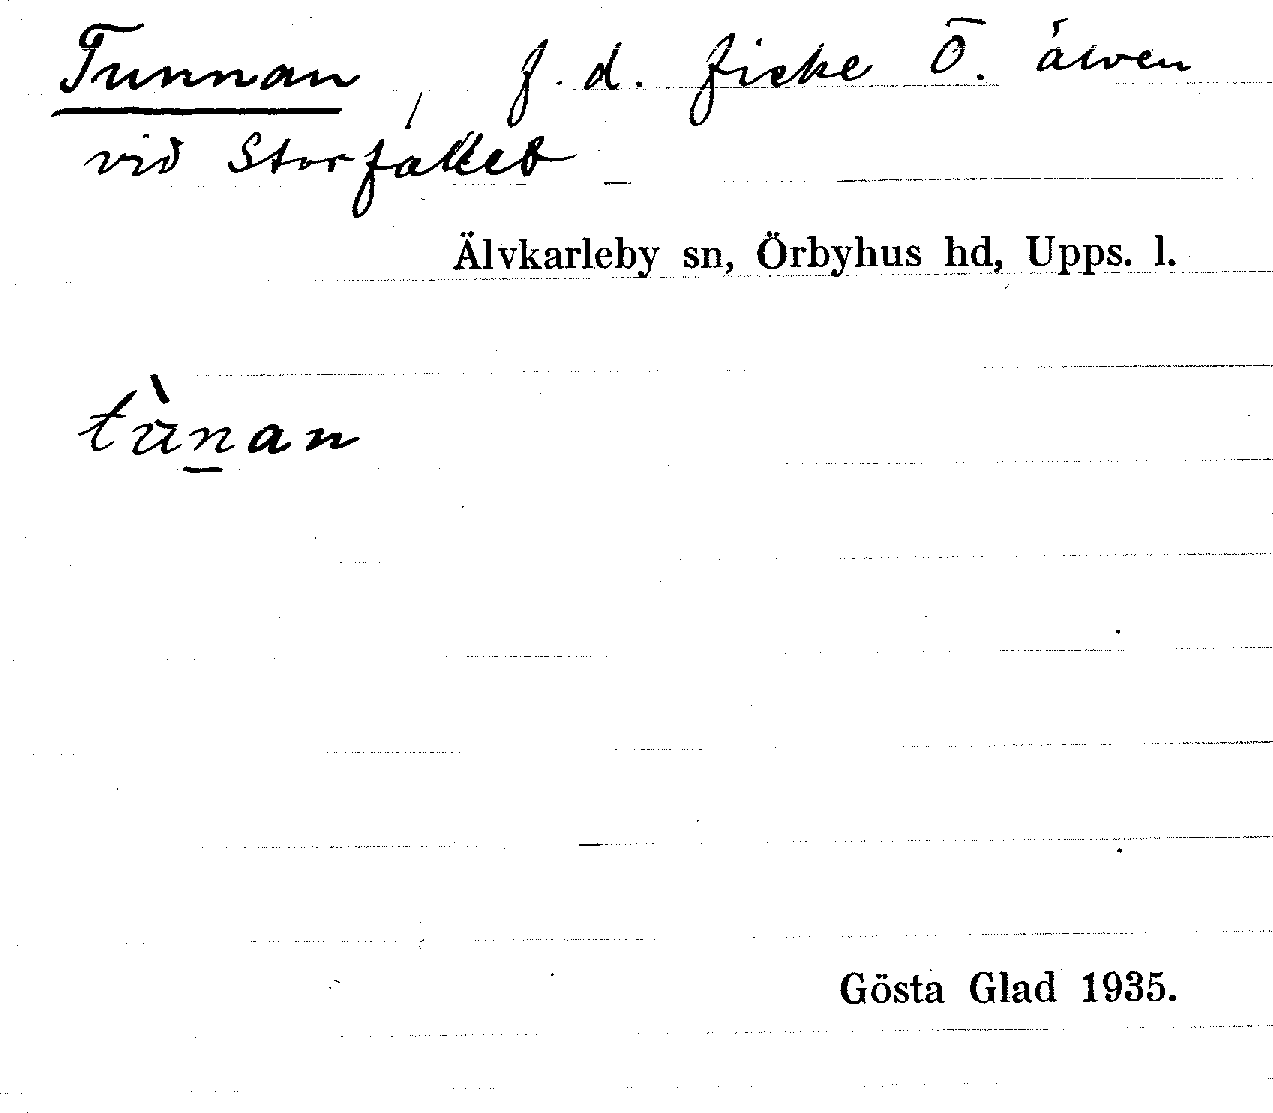 Tunnan, f. d. fiske Ö. älven
vid Storfallet
Älvkarleby sn, Örbyhus hd, Upps. l.
tùnan
Gösta Glad 1935.